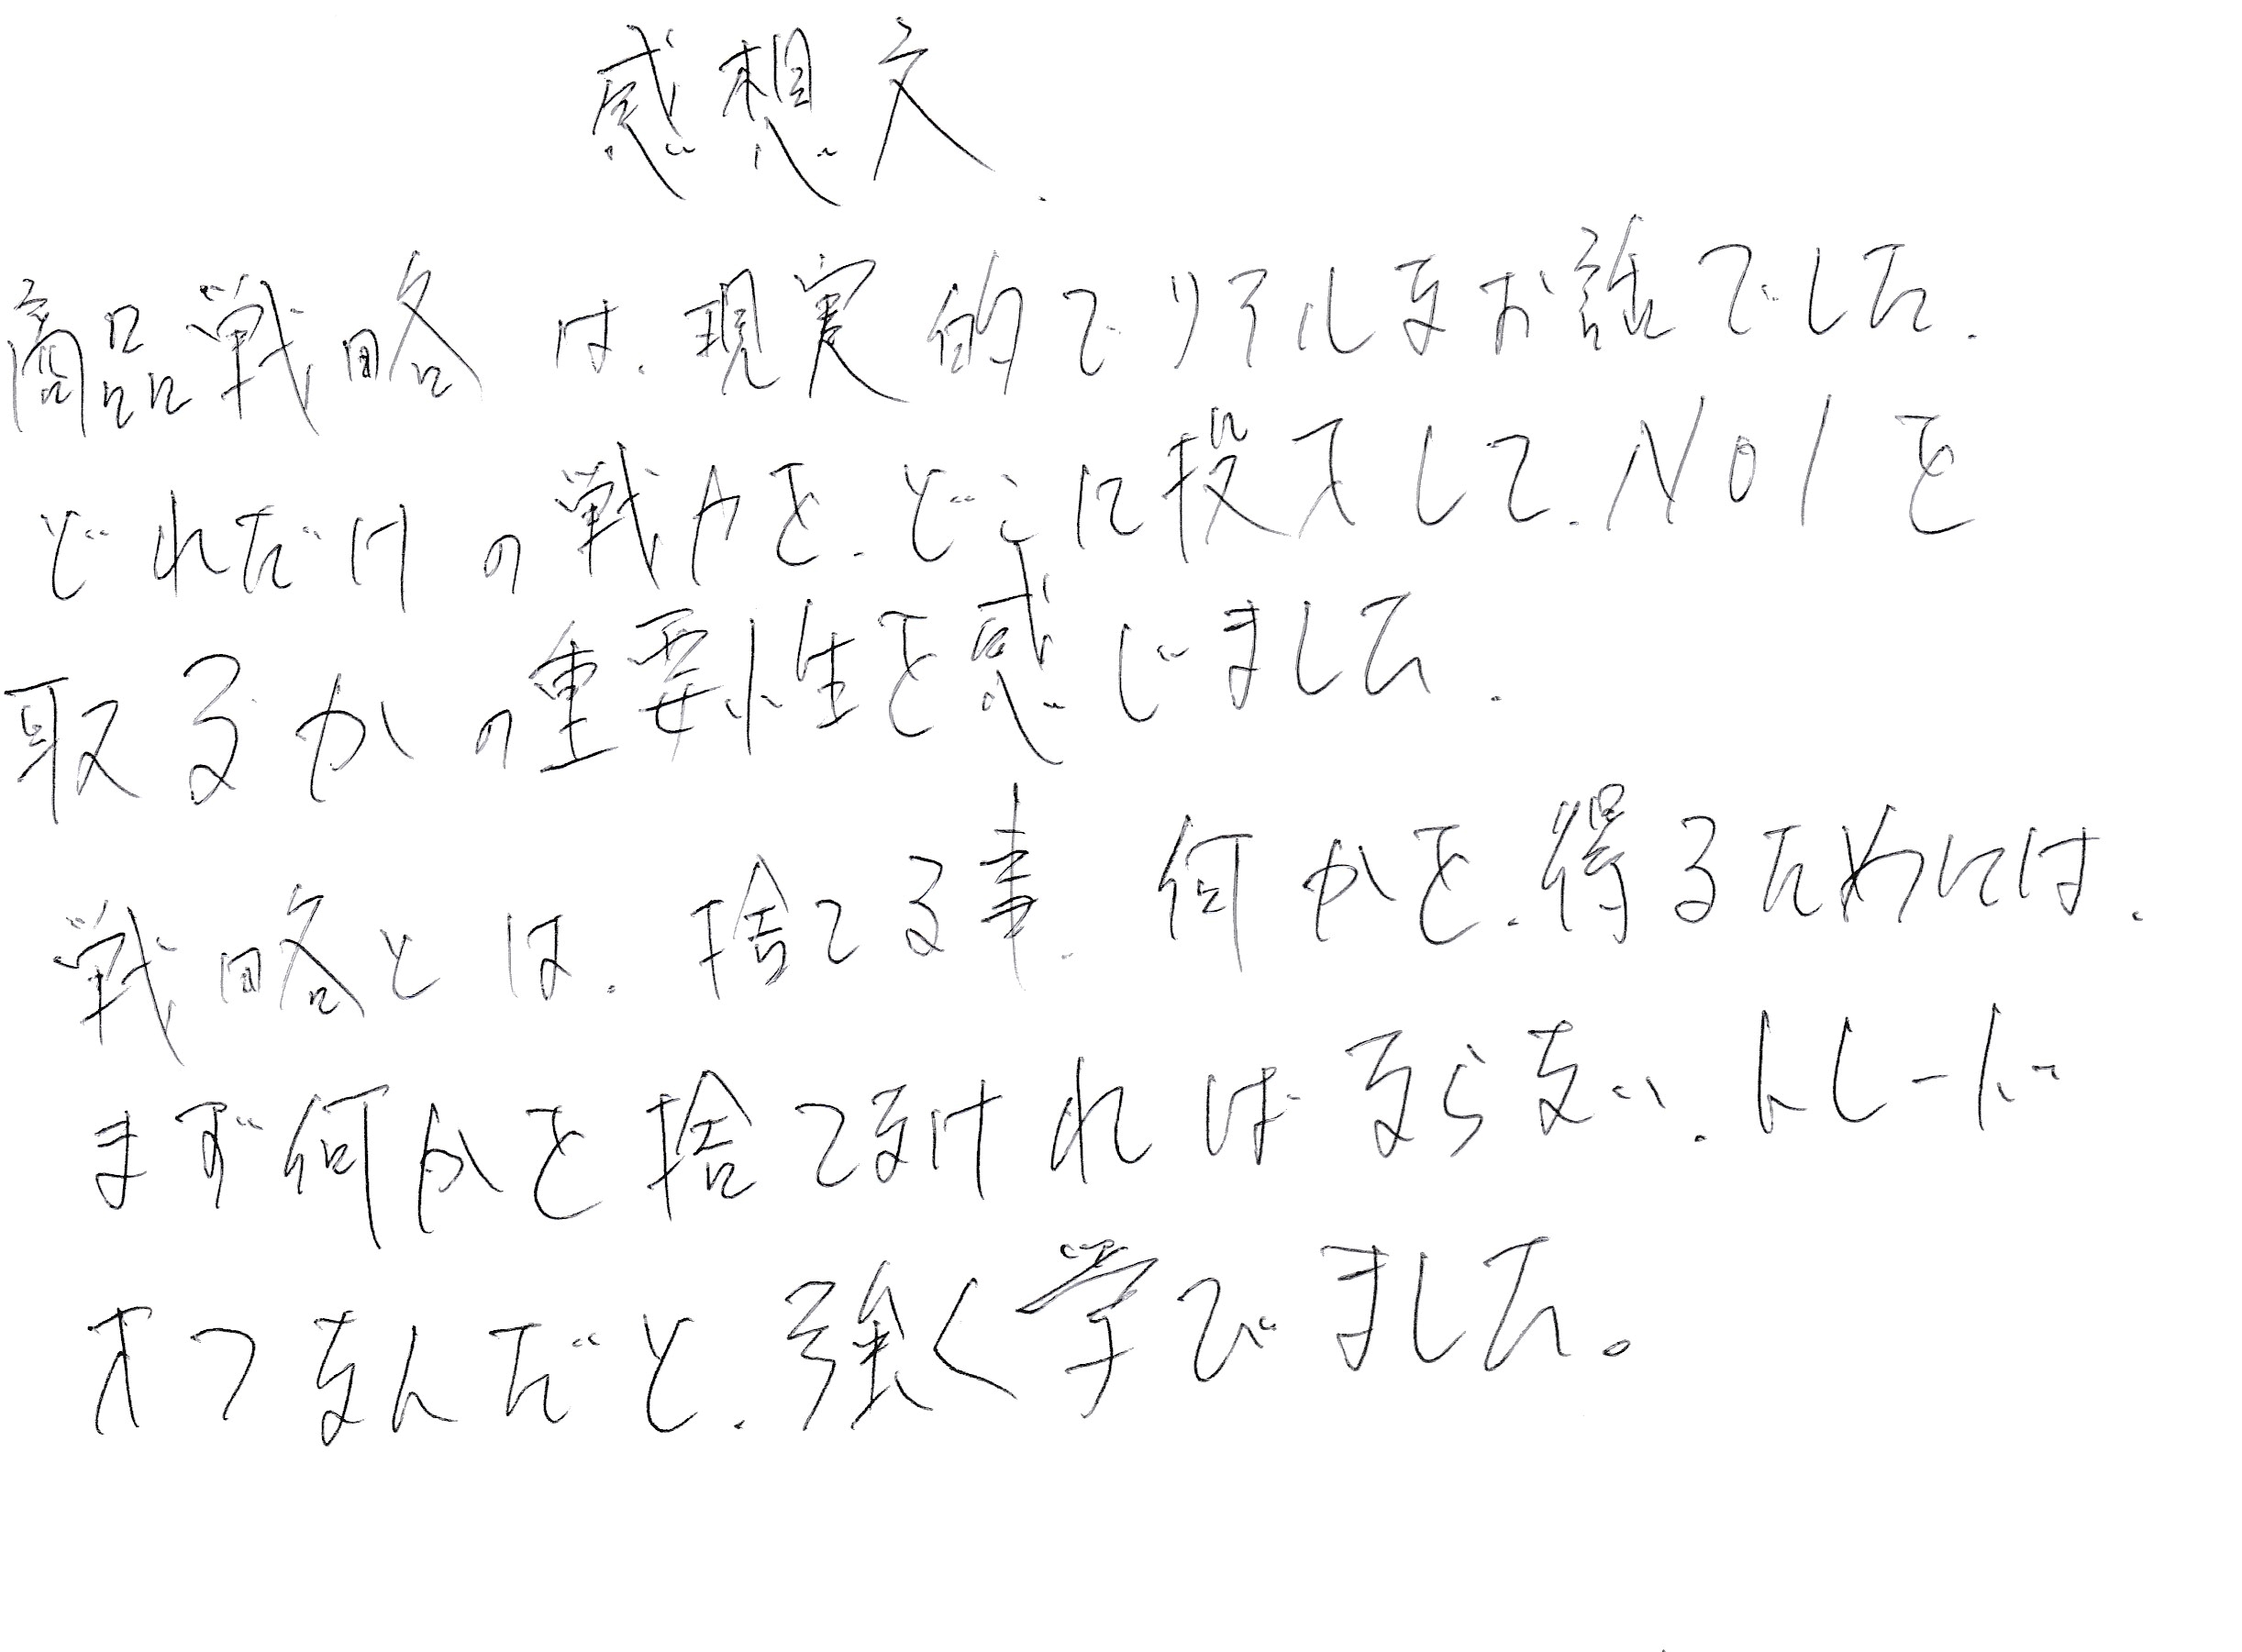 感想文
商品戦略は、現実的でリアルなお話でした。
どれだけの戦力を、どこに投入して、NO1を
取るかの重要性を感じました。
戦略とは、捨てる事、何かを、得るためには、
まず何かを捨てなければならない、トレード
オフなんだと、強く学びました。